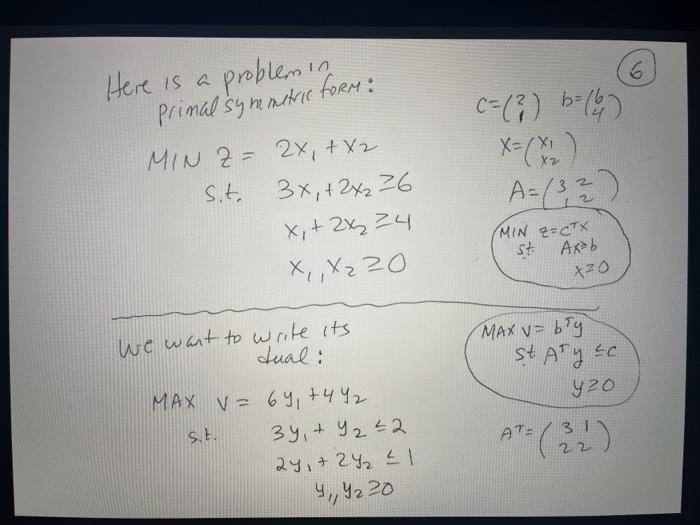 6
Here is a problem in
primal symmetric form:
MIN Z = 2x₁ + x₂
s.t. 3x₁ + 2x₂ ≥ 6
x₁ + 2x₂ ≥ 4
x₁, x₂ ≥ 0
C = (2 1) b = (6 4)
X = (x₁ x₂)
A = (3 2 1 2)
MIN Z = CᵀX
st. AX ≥ b
X ≥ 0
We want to write its
dual:
MAX V = 6y₁ + 4y₂
s.t. 3y₁ + y₂ ≤ 2
2y₁ + 2y₂ ≤ 1
y₁, y₂ ≥ 0
MAX V = bᵀy
st Aᵀy ≤ C
y ≥ 0
Aᵀ = (3 1 2 2)